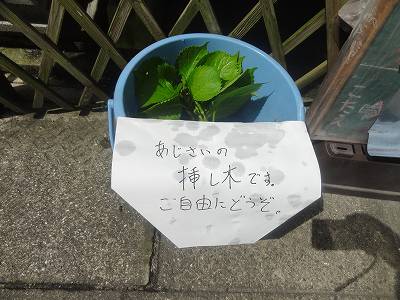 あじさいの
挿し木です。
ご自由にどうぞ。